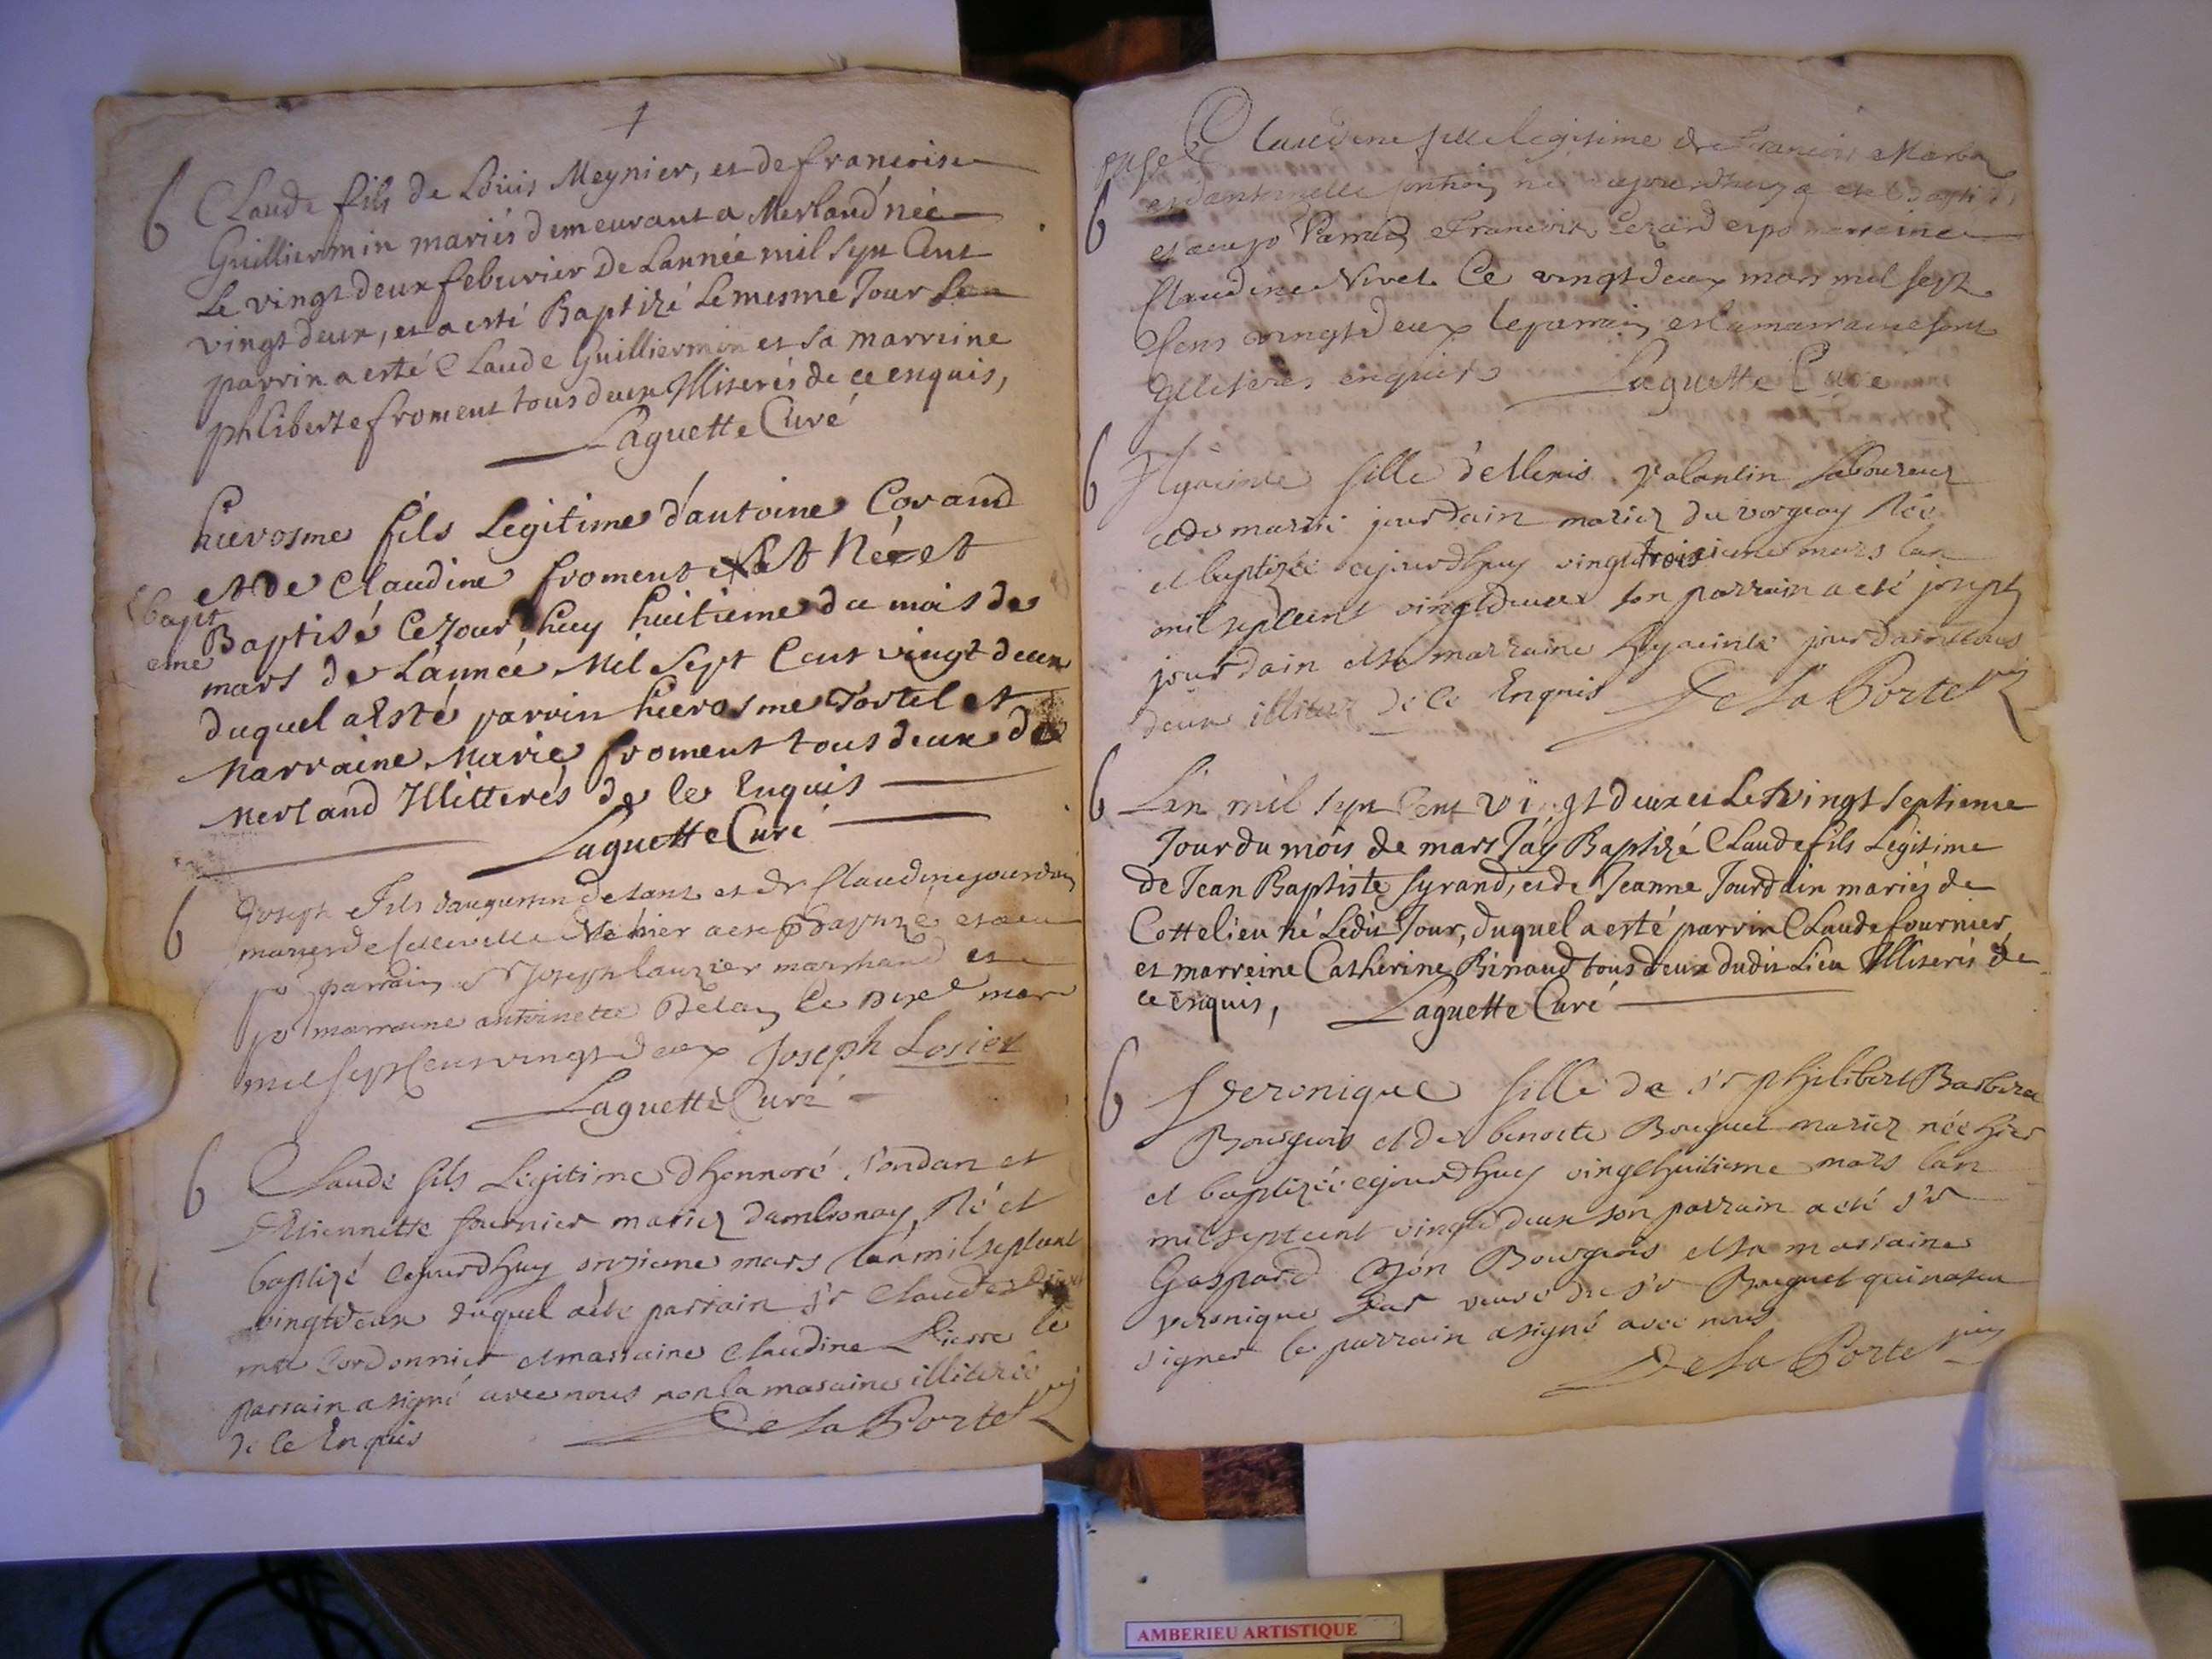 6 Claude fils de Loüis Meynier, et de francoise
Guilliermin mariés demeurant a Merland née
Le vingt deux feburier De Lannée mil sept Cent
vingt deux, et a esté Baptizé Le mesme Jour son
parrin a esté Claude Guilliermin et sa marreine
philiberte froment tous deux Illiterés de ce enquis,
Laguette Curé
hierosme fils Legitime d'antoine Corand
et de Claudine froment est Né et
Bapt
eme
Baptisé Cejourdhuy huitieme du mois de
mars de L'année Mil Sept Cent vingt deux
duquel a Esté parrin hierosme Tortel et
Marraine Marie froment tous deux de
Merland Illitterés de Ce Enquis
Laguette Curé
6 Joseph Fils daugustin et de Claudine jourdain
mariés de Né hier a este Baptizé et a eu
po parrain Sr Joseph lauzier marchand et
po marraine antoinette Le mars
mil sept Cent vingt deux Joseph Losier
Laguette Curé
6 Claude fils Légitime dhonnoré et
Etiennette fournier mariez dambronay, Né et
baptizé cejourdhuy onzieme mars lan mil septcent
vingtdeux duquel a été parrain Sr Claude
Cordonnier et marraine Claudine Pierre le
parrain a signé avec nous non la maraine illiterée
de Ce Enquis DelaPorte
Claudine fille legitime de Francois
6 et dantoinette née aujourdhuy a été baptisée
et a eu po Parrain Francois et po marreine
Claudine Vivet Ce vingt deux mars mil sept
Cens vingt deux le parrain et la marraine sont
Illiterés enquis Laguette Curé
6 Hyacinte fille de Denis Valantin laboureur
et de marie jourdain mariez du Née
et baptizée cejourdhuy vingt troisieme mars lan
mil septcent vingtdeux son parrain a été joseph
jourdain et sa marraine hyacinte jourdain tous
deux illiterez de Ce Enquis DelaPorte
6 Lan mil sept Cent vingt deux et Le vingt septieme
Jour du mois de mars J'ay Baptizé Claude fils Legitime
de Jean Baptiste Syrand, et de Jeanne Jourdain mariés de
Cottelieu né Ledit Jour, duquel a esté parrin Claude fournier,
et marreine Catherine Binaud tous deux dudit Lieu Illiterés de
ce enquis, Laguette Curé
6 Veronique fille de Sr philibert
Bourgeois et de benoite Bouquet mariez née hier
et baptizée cejourdhuy vingthuitieme mars lan
mil septcent vingt deux son parrain a été Sr
Gaspard Bourgeois et sa marraine
veronique veuve de Sr Bouquet qui na sceu
signer le parrain a signé avec nous
DelaPorte
AMBERIEU ARTISTIQUE